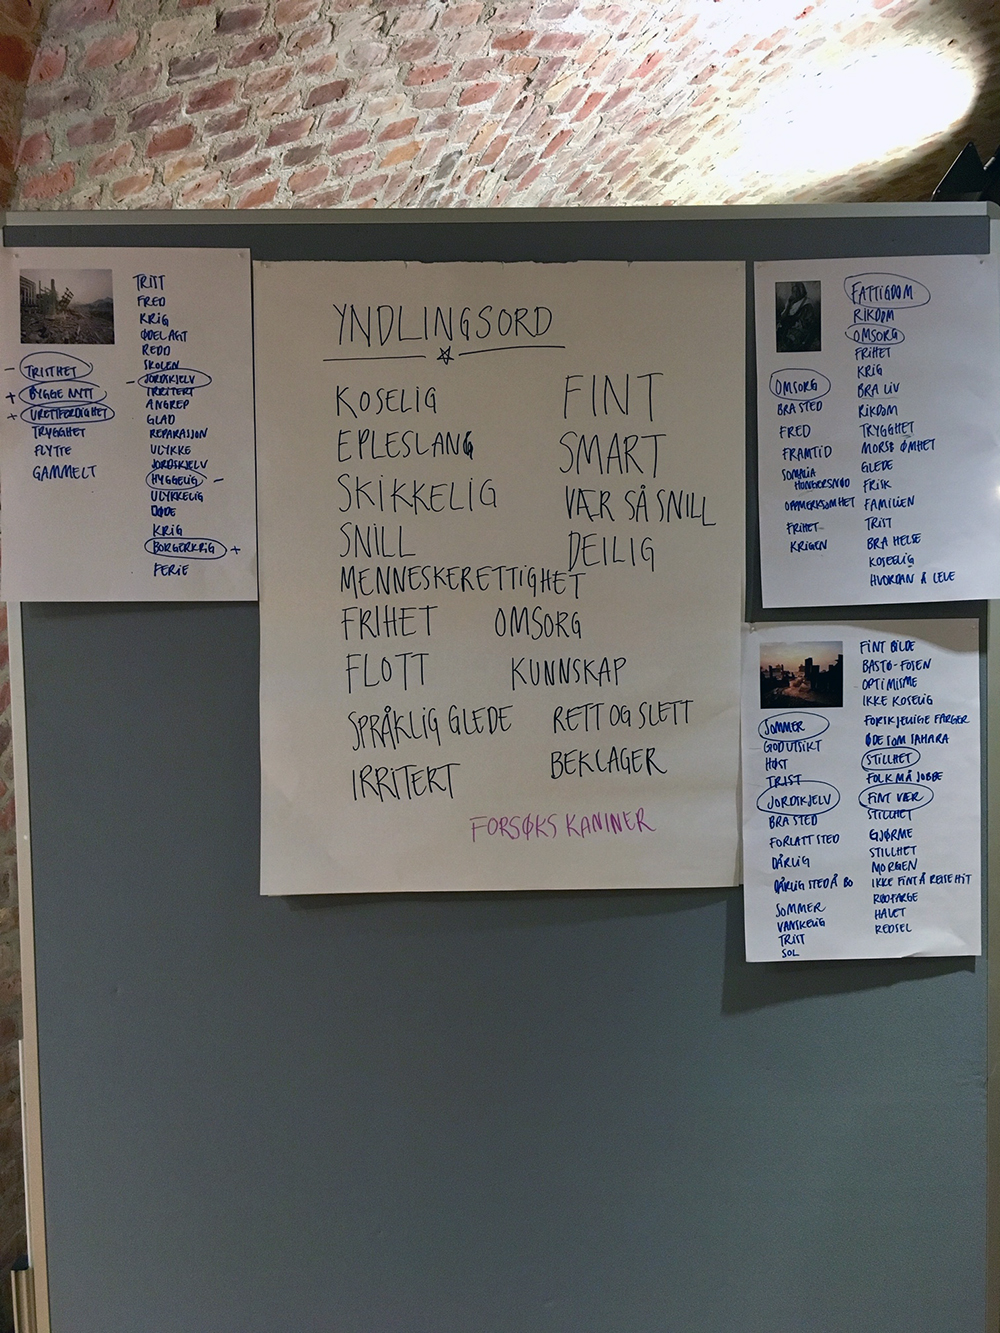 TRIST
FRED
KRIG
ØDELAGT
REDD
SKOLEN
JORDSKJELV
IRRITERT
ANGREP
GLAD
REPARASJON
ULYKKE
JORDSKJELV
HYGGELIG
ULYKKELIG
DØDE
KRIG
BORGERKRIG +
FERIE
- TRISTHET
+ BYGGE NYTT
+ URETTFERDIGHET
TRYGGHET
FLYTTE
GAMMELT
YNDLINGSORD
KOSELIG
EPLESLANG
SKIKKELIG
SNILL
MENNESKERETTIGHET
FRIHET OMSORG
FLOTT KUNNSKAP
SPRÅKLIG GLEDE RETT OG SLETT
IRRITERT BEKLAGER
FINT
SMART
VÆR SÅ SNILL
DEILIG
FORSØKS KANINER
FATTIGDOM
RIKDOM
OMSORG
FRIHET
KRIG
BRA LIV
RIKDOM
TRYGGHET
MORS ØMHET
GLEDE
FRISK
FAMILIEN
TRIST
BRA HELSE
KOSELIG
HVORDAN Å LEVE
OMSORG
BRA STED
FRED
FRAMTID
SOMALIA
HUNGERSNØD
OPPMERKSOMHET
FRIHET
KRIGEN
FINT BILDE
BASTØ-FOSEN
OPTIMISME
IKKE KOSELIG
FORSKJELLIGE FARGER
ØDE SOM SAHARA
STILLHET
FOLK MÅ JOBBE
FINT VÆR
STILLHET
GJØRME
STILLHET
MORGEN
IKKE FINT Å REISE HIT
RØDFARGE
HAVET
REDSEL
SOMMER
GOD UTSIKT
HØST
TRIST
JORDSKJELV
BRA STED
FORLATT STED
DÅRLIG
DÅRLIG STED Å BO
SOMMER
VANSKELIG
TRIST
SOL